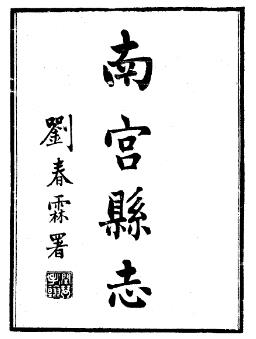 南宫縣志
劉春霖署